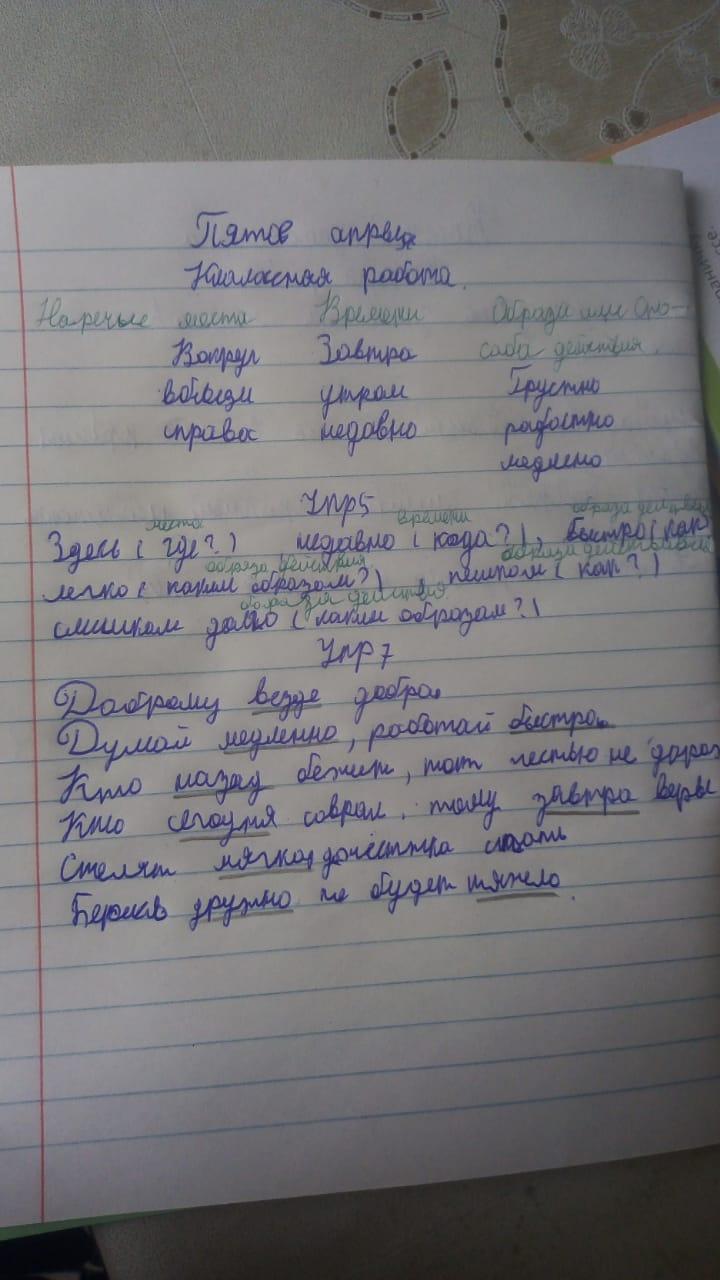 Пятое апреля
Классная работа.
Наречие места Времени Образа или Спо-
Вокруг Завтра соба действия.
вблизи утром Грустно
справа недавно радостно
медлено
Упр5
места времени образа действия
Здесь (где?) недавно (кагда?), быстро (как
образа действия образа действия
легко (каким образом?) , пешком (как?)
образа действия
слишком долго (каким образом?)
Упр 7
Доброму везде добро.
Думай медленно, работай быстро.
Кто назад бежит, тот честью не дорож
Кто сегодня соврал, тому завтра
Стелят мягко, да спать
дружно не будет тяжело.